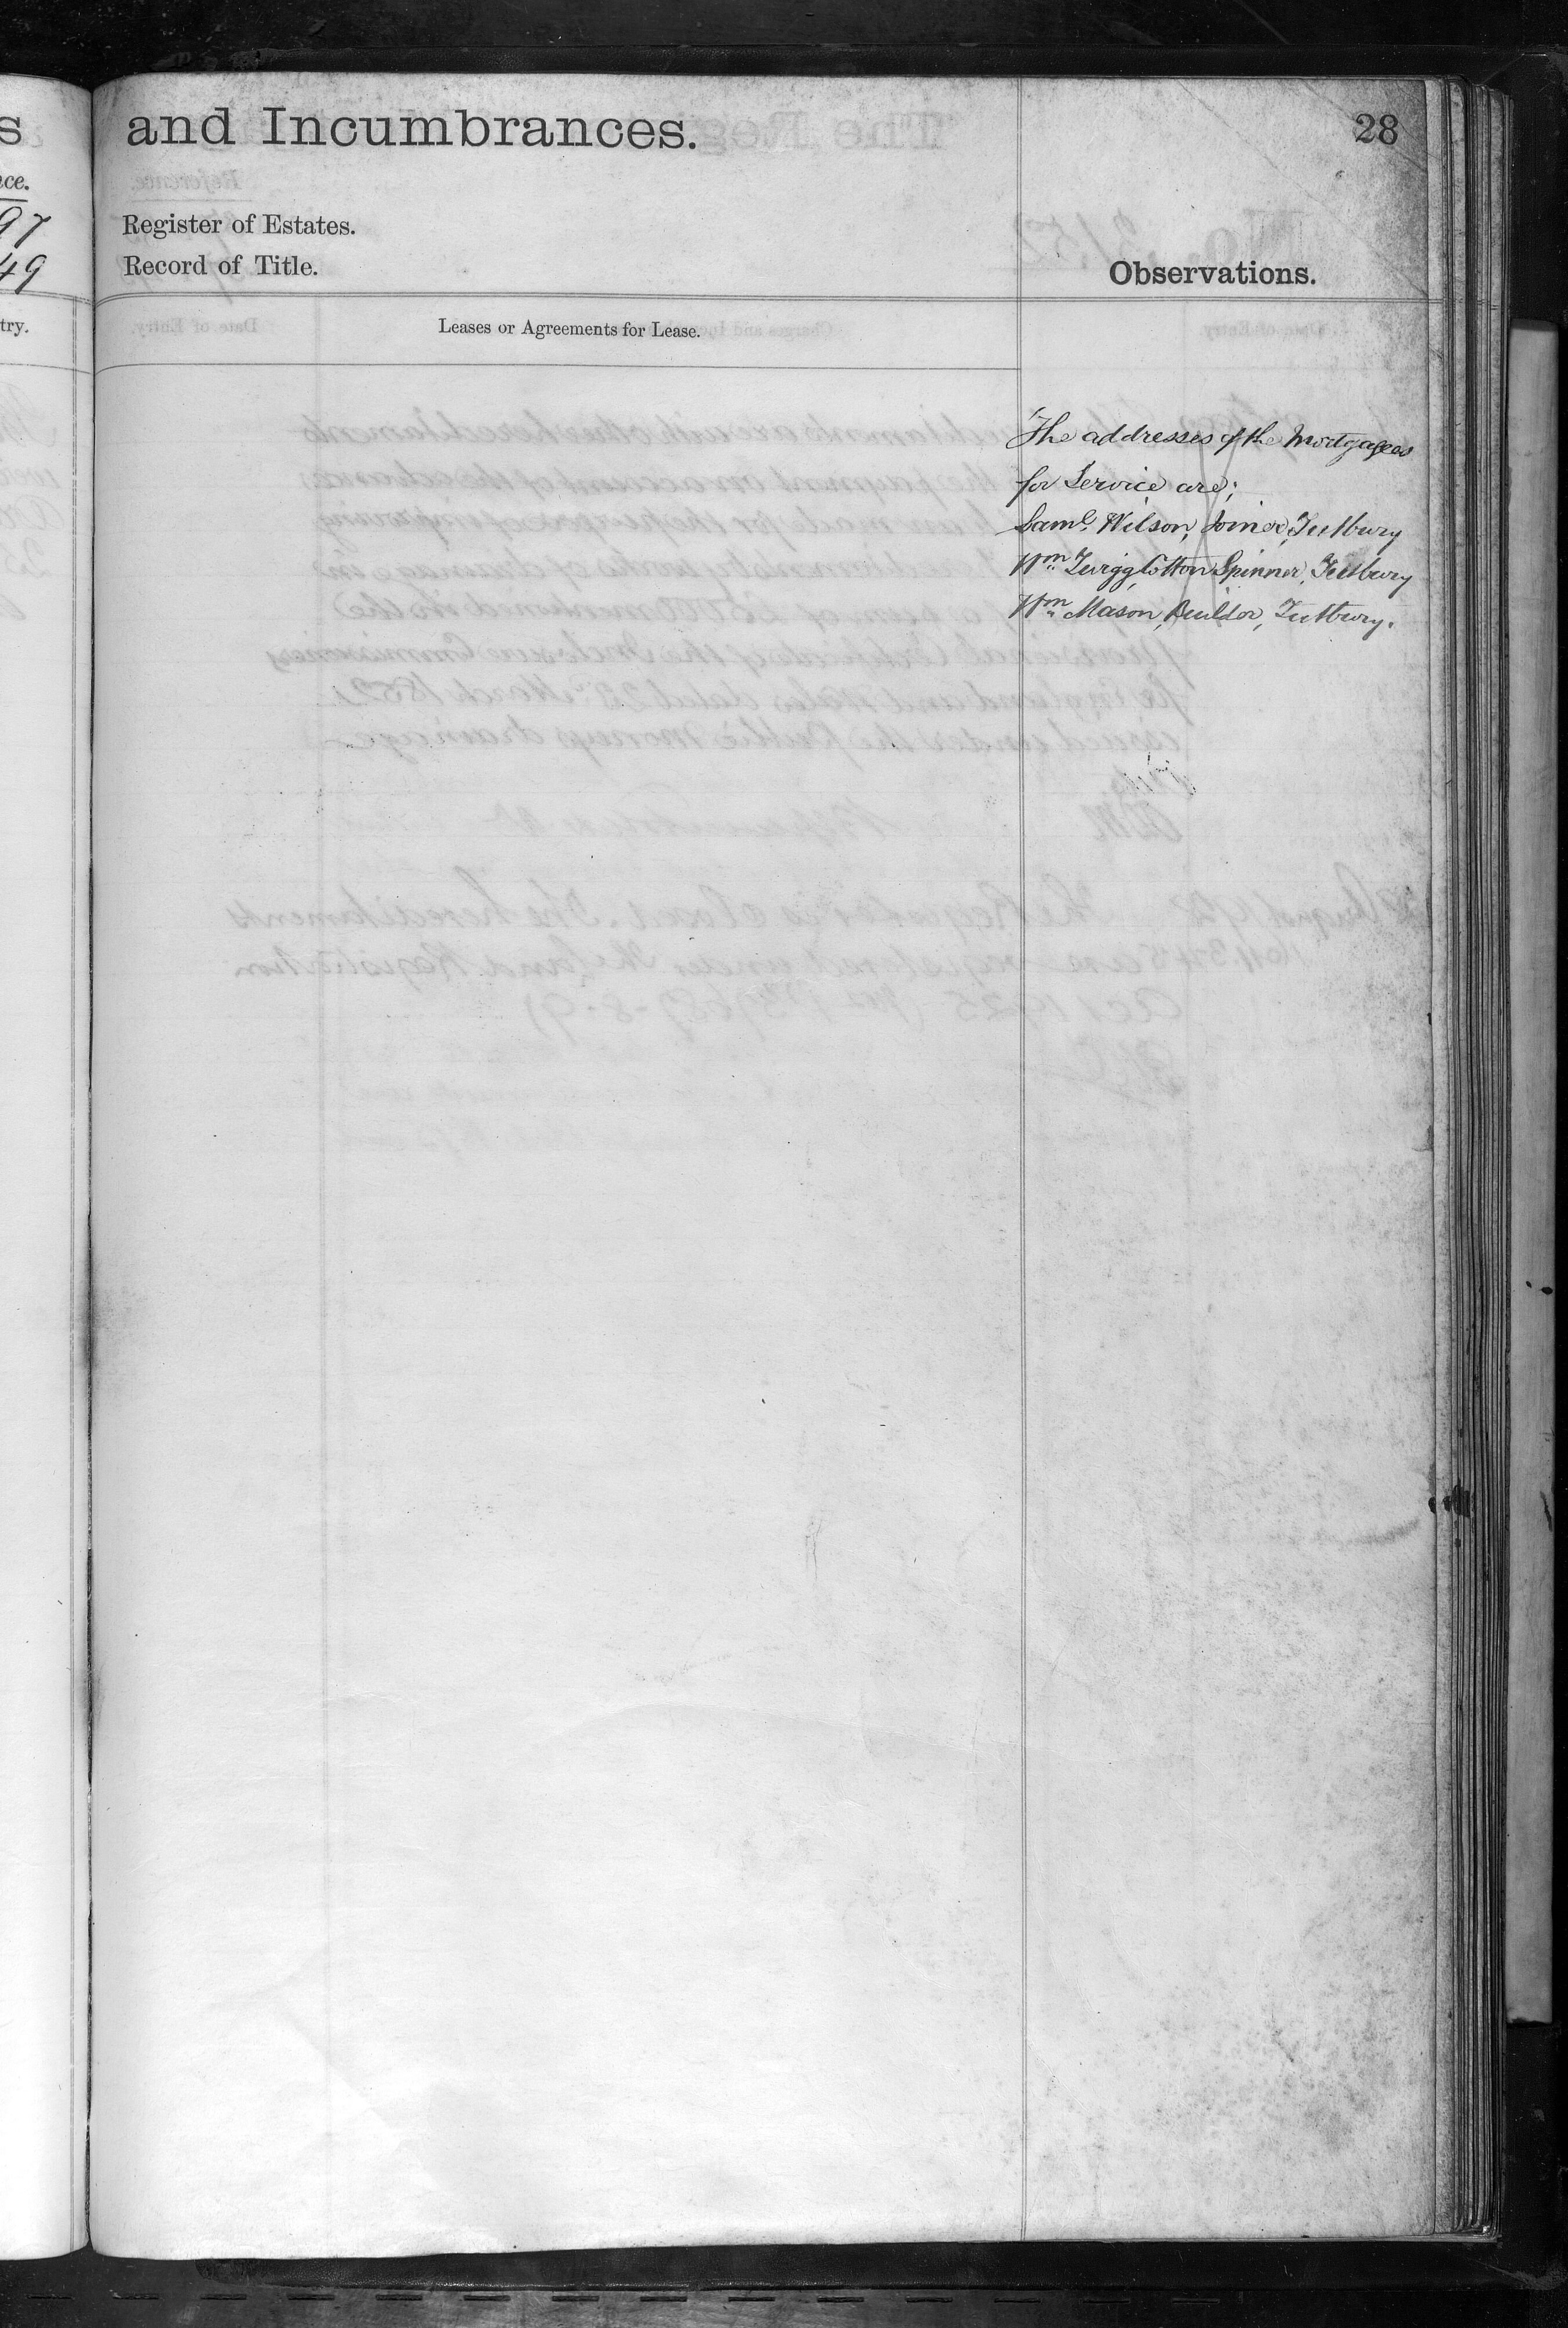 s
ce.
97
49
try.
and Incumbrances.
28
Register of Estates.
Record of Title.
Observations.
Leases or Agreements for Lease.
The addresses of the Mortgagees
for Service are;
Saml. Wilson, Joiner, Tutbury
Wm Twigg Cotton Spinner, Tutbury
Wm Mason, Builder, Tutbury.